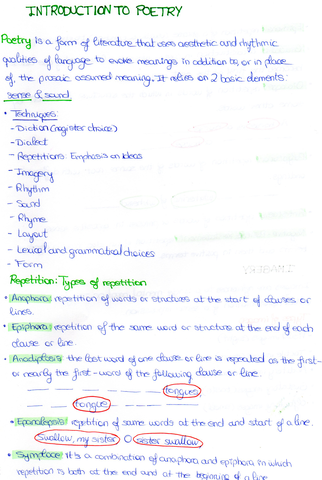 INTRODUCTION TO POETRY
Poetry is a form of literature that uses aesthetic and rhythmic
qualities of language to evoke meanings in addition to, or in place
of, the prosaic assumed meaning. It relies on 2 basic elements:
sense & sound.
• Techniques:
- Diction (register choice)
- Dialect
- Repetitions: Emphasis on ideas
- Imagery
- Rhythm
- Sound
- Rhyme
- Layout
- Lexical and grammatical choices
- Form
Repetition: Types of repetition
• Anaphora: repetition of words or structures at the start of clauses or
lines.
• Epiphora: repetition of the same word or structure at the end of each
clause or line.
• Anadiplosis: the last word of one clause or line is repeated as the first-
or nearly the first-word of the following clause or line.
tongues
tongues
• Epanalepsis: repetition of same words at the end and start of a line.
Swallow, my sister O sister swallow
• Symploce: it's a combination of anaphora and epiphora in which
repetition is both at the end and at the beginning of a line.